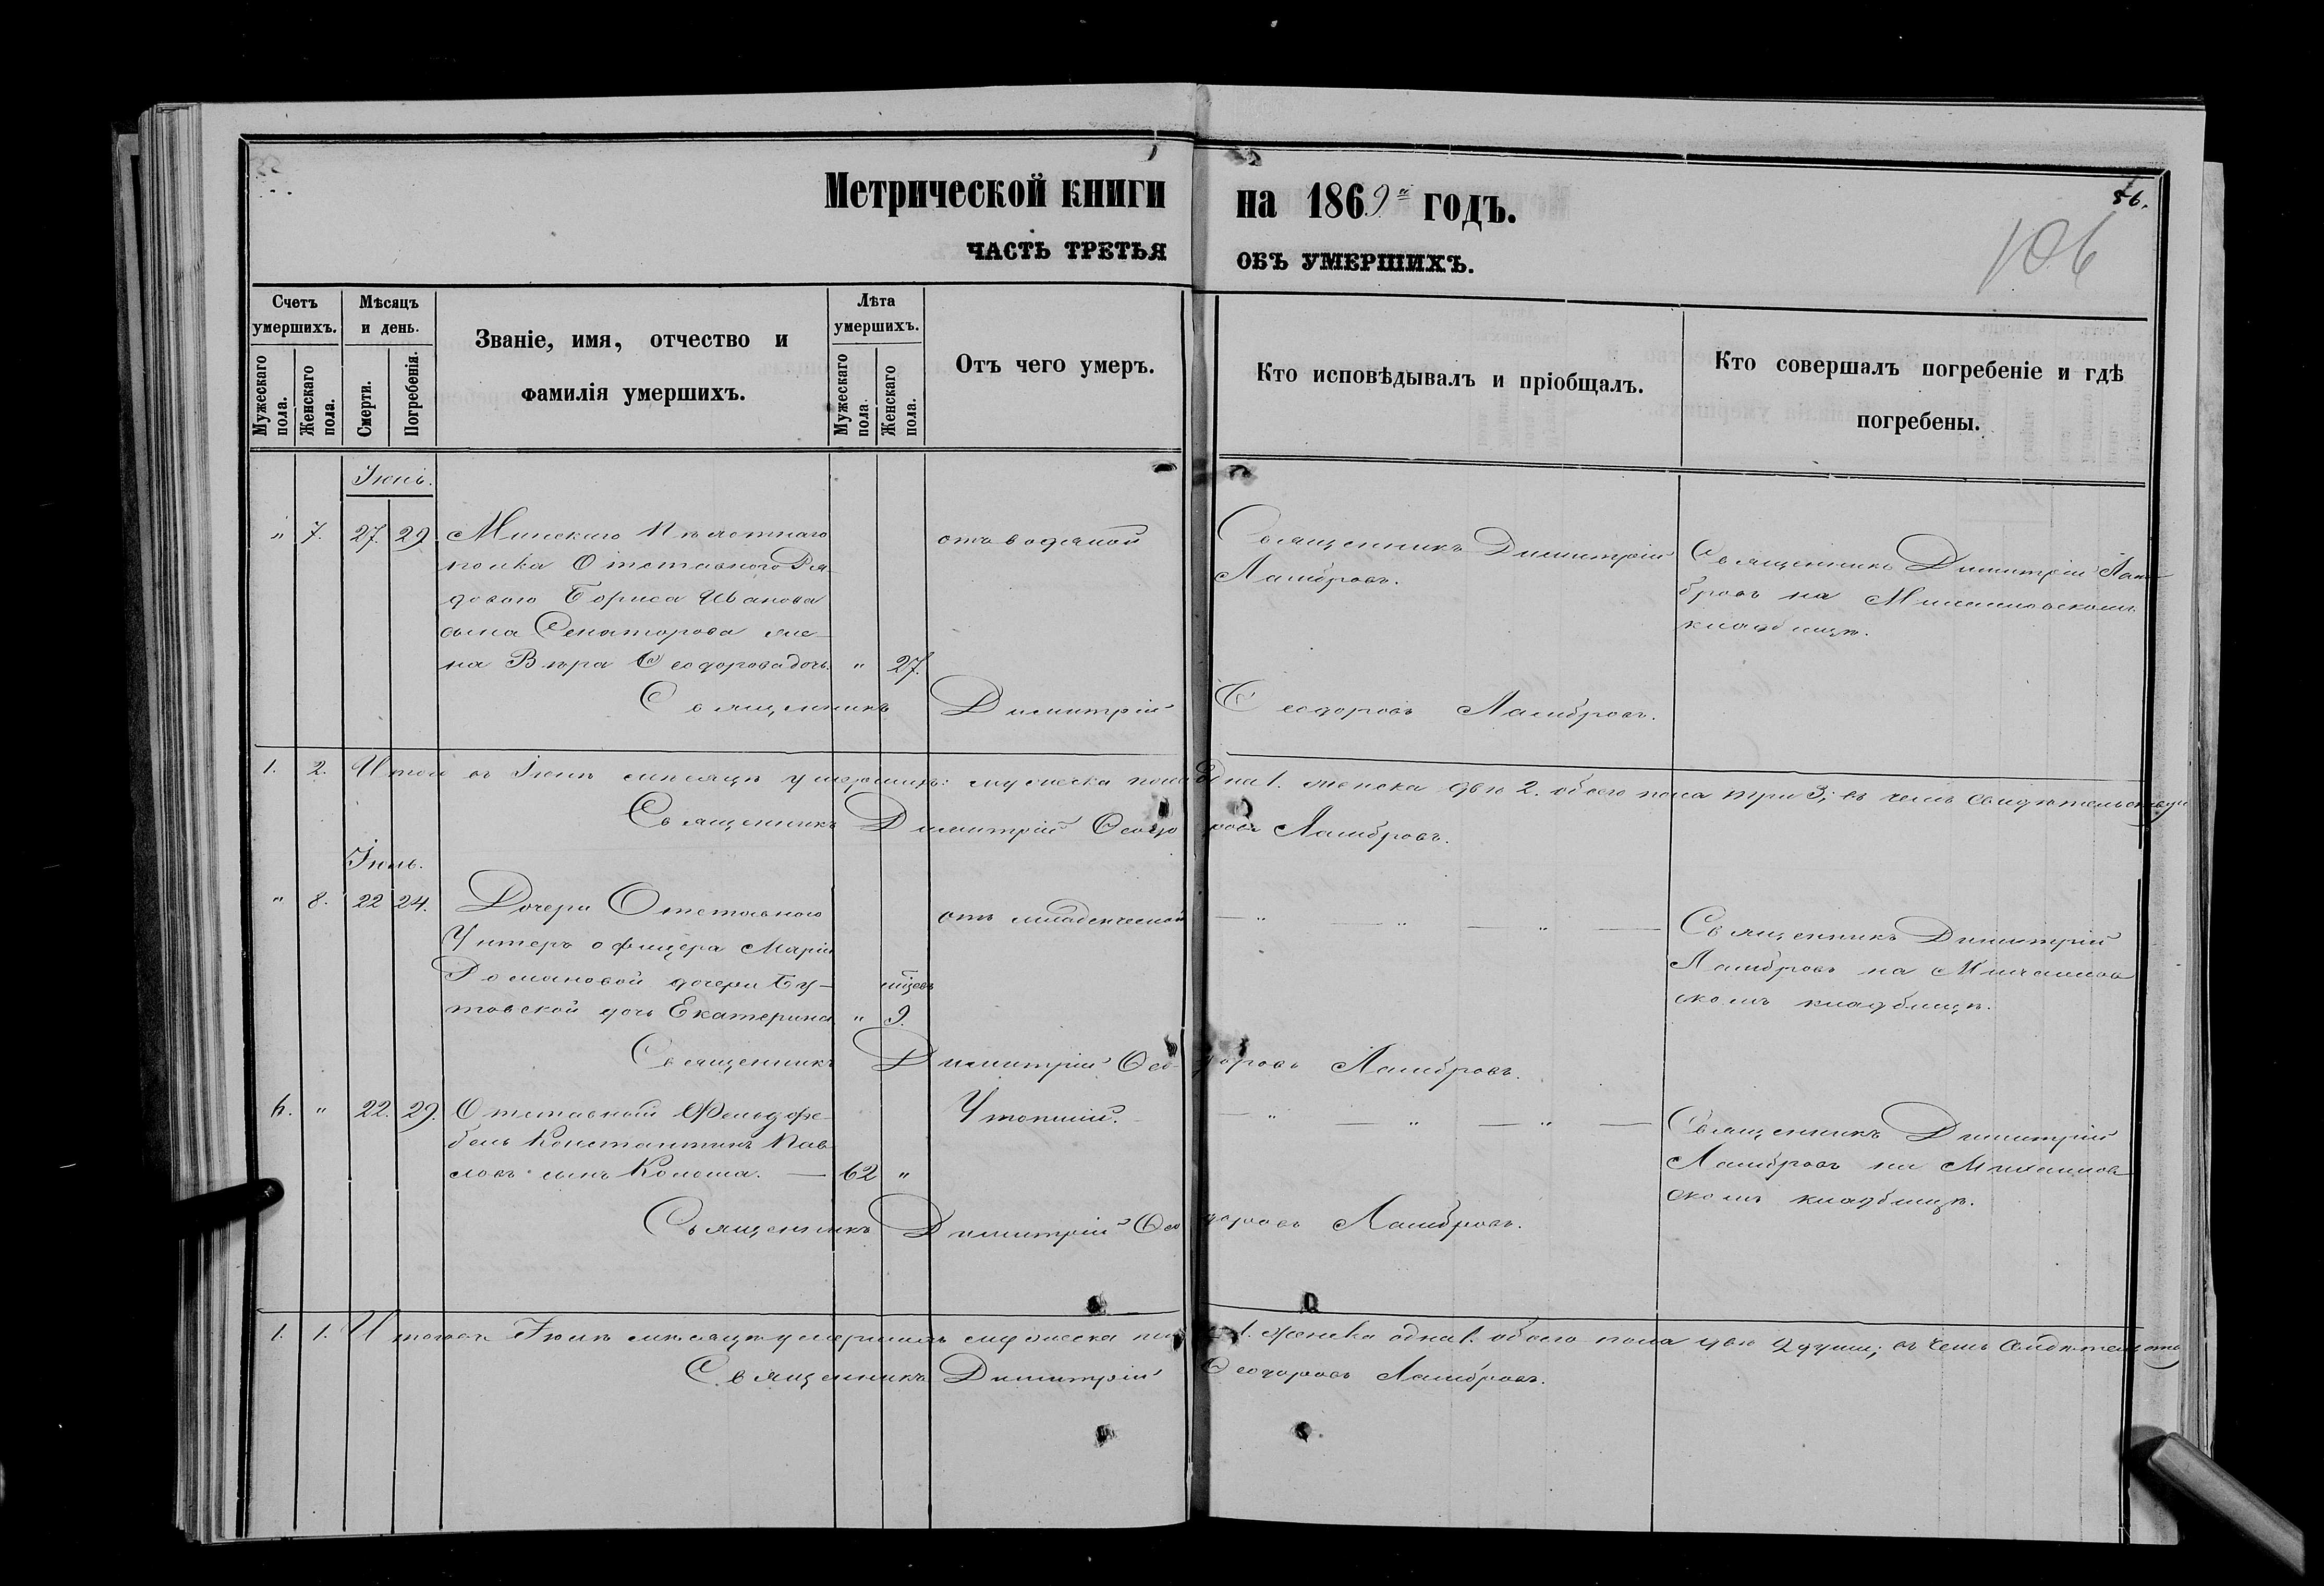 Метрической книги на 1869й годъ.
86.
106
ЧАСТЬ ТРЕТЬЯ ОБЪ УМЕРШИХЪ.
Счетъ умершихъ.
Мужескаго пола.
Женскаго пола.
Мѣсяцъ и день.
Смерти.
Погребенія.
Званіе, имя, отчество и
фамилія умершихъ.
Лѣта умершихъ.
Мужескаго пола.
Женскаго пола.
Отъ чего умеръ.
Кто исповѣдывалъ и пріобщалъ.
Кто совершалъ погребеніе и гдѣ
погребены.
Іюнь.
" 7. 27. 29. Минскаго Пѣхотнаго
полка Отставного Ря-
дового Бориса Иванова
сына Сенаторова же-
на Вѣра Ѳеодорова дочь. " 27.
отъ водяной
Священникъ Димитрій
Ламбровъ.
Священникъ Димитрій Лам-
бровъ на Михайловскомъ
кладбищѣ.
Священникъ Димитрій Ѳеодоровъ Ламбровъ.
1. 2. Итого въ Іюнѣ мѣсяцѣ умершихъ: мужеска пола одна 1. женска двѣ 2. обоего пола три 3; въ чемъ свидѣтельствую
Священникъ Димитрій Ѳеодоровъ Ламбровъ.
Іюль.
" 8. 22 24. Дочери Отставного
Унтеръ офицера Маріи
Романовой дочери Бу-
товской дочь Екатерина " 9.
отъ младенческой
— " — " — " —
Священникъ Димитрій
Ламбровъ на Михайлов
скомъ кладбищѣ.
Священникъ Димитрій Ѳеодоровъ Ламбровъ.
6. " 22. 29. Отставной Фельдфе-
бель Константинъ Пав-
ловъ сынъ — 62 "
Утопшій.
— " — " — " —
Священникъ Димитрій
Ламбровъ на Михайлов
скомъ кладбищѣ.
Священникъ Димитрій Ѳеодоровъ Ламбровъ.
1. 1. Итого въ Іюлѣ мѣсяцѣ умершихъ мужеска 1. женска одна 1. обоего пола двѣ 2 души; въ чемъ
Священникъ Димитрій Ѳеодоровъ Ламбровъ.